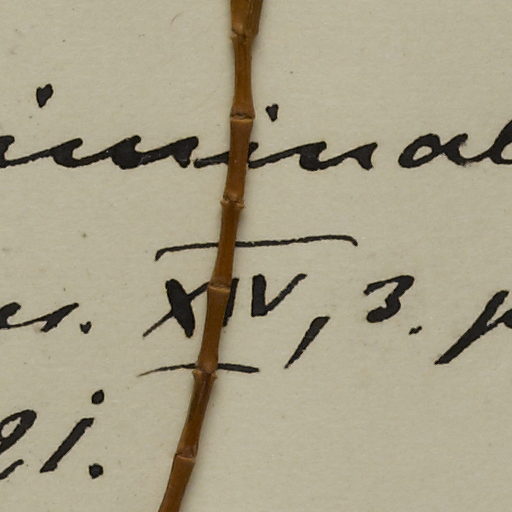 iminal
es. XIV, 3. p
2i.